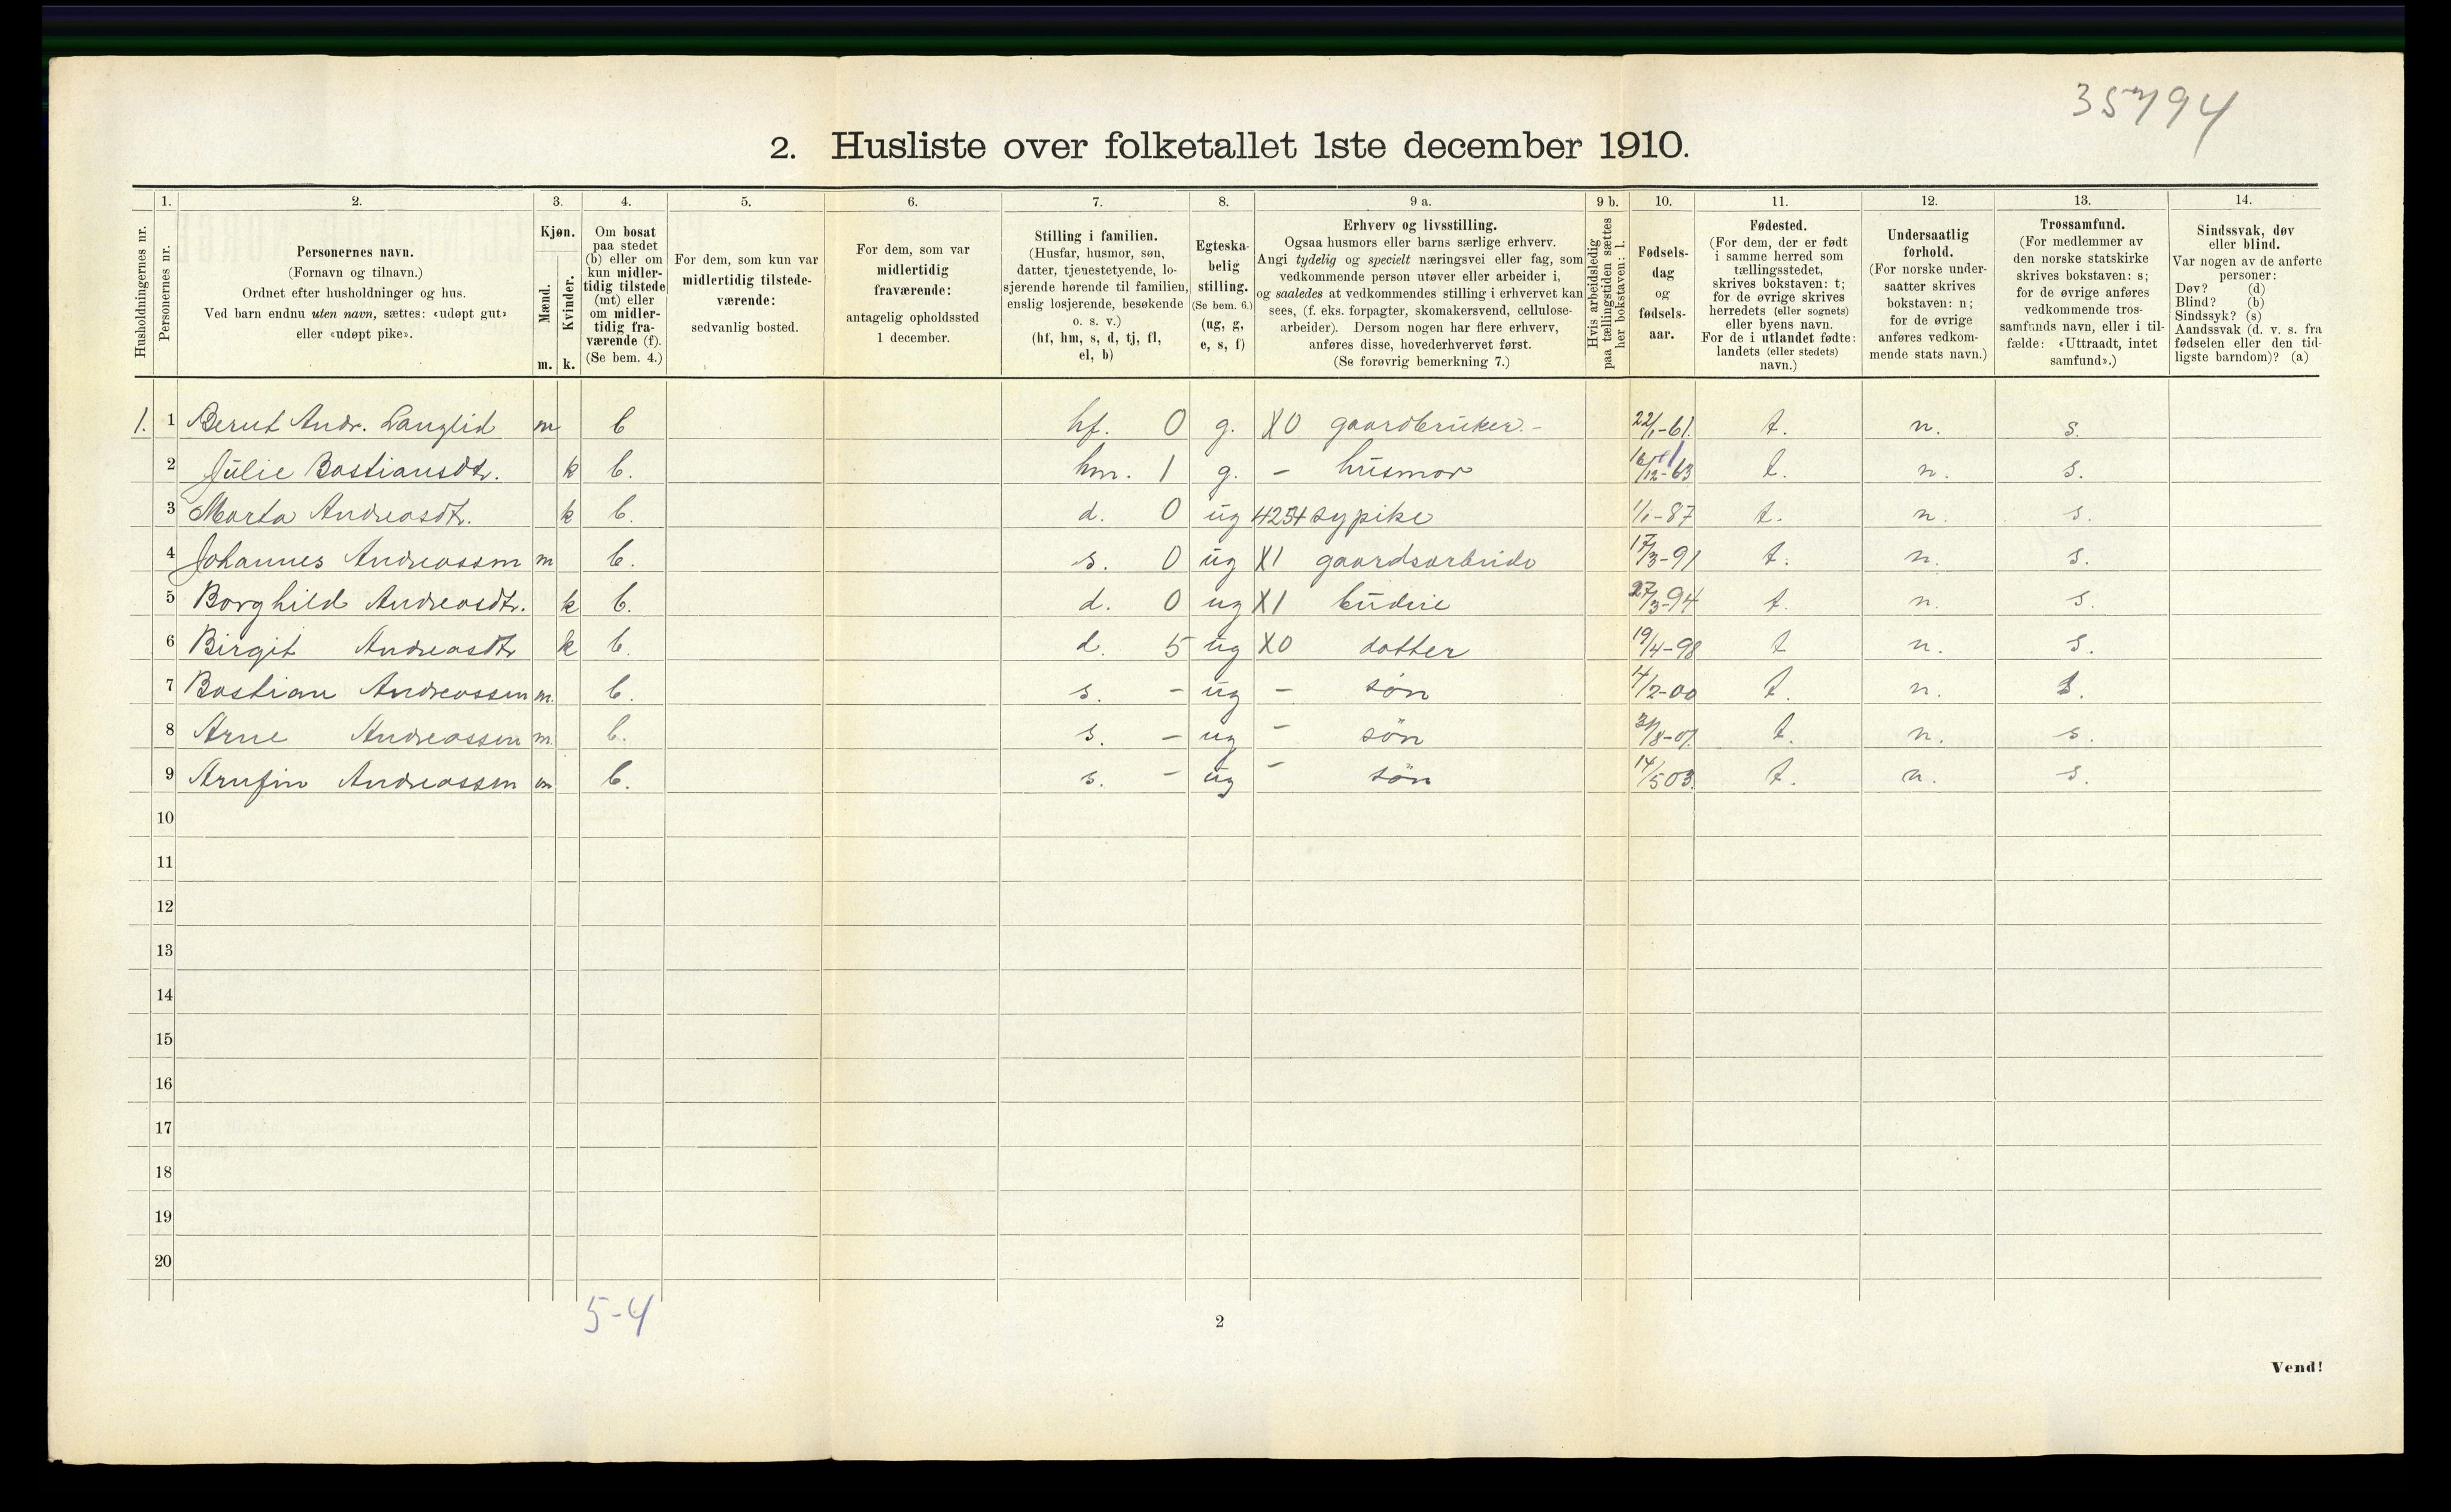 35794
2. Husliste over folketallet 1ste december 1910.
Husholdningernes nr.
1.
Personernes nr.
2.
Personernes navn.
(Fornavn og tilnavn.)
Ordnet efter husholdninger og hus.
Ved barn endnu uten navn, sættes: «udøpt gut»
eller «udøpt pike».
3.
Kjøn.
Mænd.
m.
Kvinder.
k.
4.
Om bosat
paa stedet
(b) eller om
kun midler-
tidig tilstede
(mt) eller
om midler-
tidig fra-
værende (f).
(Se bem. 4.)
5.
For dem, som kun var
midlertidig tilstede-
værende:
sedvanlig bosted.
6.
For dem, som var
midlertidig
fraværende:
antagelig opholdssted
1 december.
7.
Stilling i familien.
(Husfar, husmor, søn,
datter, tjenestetyende, lo-
sjerende hørende til familien,
enslig losjerende, besøkende
o. s. v.)
(hf, hm, s, d, tj, fl,
el, b)
8.
Egteska-
belig
stilling.
(Se bem. 6.)
(ug, g,
e, s, f)
9 a.
Erhverv og livsstilling.
Ogsaa husmors eller barns særlige erhverv.
Angi tydelig og specielt næringsvei eller fag, som
vedkommende person utøver eller arbeider i,
og saaledes at vedkommendes stilling i erhvervet kan
sees, (f. eks. forpagter, skomakersvend, cellulose-
arbeider). Dersom nogen har flere erhverv,
anføres disse, hovederhvervet først.
(Se forøvrig bemerkning 7.)
9 b.
Hvis arbeidsledig
paa tællingstiden sættes
her bokstaven: l.
10.
Fødsels-
dag
og
fødsels-
aar.
11.
Fødested.
(For dem, der er født
i samme herred som
tællingsstedet,
skrives bokstaven: t;
for de øvrige skrives
herredets (eller sognets)
eller byens navn.
For de i utlandet fødte:
landets (eller stedets)
navn.)
12.
Undersaatlig
forhold.
(For norske under-
saatter skrives
bokstaven: n;
for de øvrige
anføres vedkom-
mende stats navn.)
13.
Trossamfund.
(For medlemmer av
den norske statskirke
skrives bokstaven: s;
for de øvrige anføres
vedkommende tros-
samfunds navn, eller i til-
fælde: «Uttraadt, intet
samfund».)
14.
Sindssvak, døv
eller blind.
Var nogen av de anførte
personer:
Døv? (d)
Blind? (b)
Sindssyk? (s)
Aandssvak (d. v. s. fra
fødselen eller den tid-
ligste barndom)? (a)
1. 1 Bernt Andr. Langlid m b hf. 0 g. X0 gaardbruker.- 22/1-61. t. n. s.
2 Julie Bastiansdtr. k b. hm. 1 g. - husmor 16/12-63 t. n. s.
3 Marta Andreasdtr. k b. d. 0 ug 4254 sypike 1/1-87 t. n. s.
4 Johannes Andreassen m b. s. 0 ug X1 gaardsarbeide 17/3-91 t. n. s.
5 Borghild Andreasdtr. k b. d. 0 ug X1 budeie 27/3-94 t. n. s.
6 Birgit Andreasdtr k b. d. 5 ug X0 datter 19/4-98 t n. s.
7 Bastian Andreassen m. b. s. - ug - søn 4/2-00 t. n. s.
8 Arne Andreassen m. b. s. - ug - søn 31/8-01. t. n. s.
9 Arnfin Andreassen m b. s. - ug - søn 14/5 03. t. n. s.
10
11
12
13
14
15
16
17
18
19
20
5-4
2
Vend!